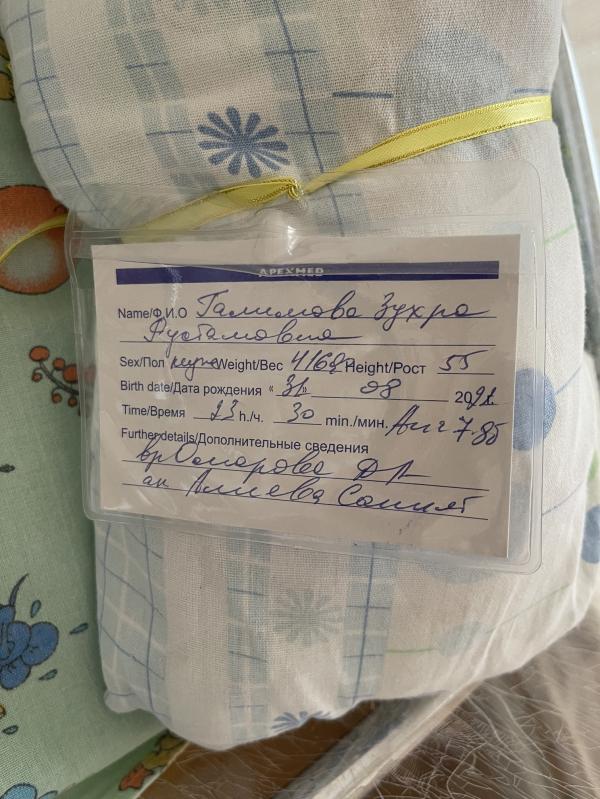 APEXMED
Name/Ф.И.О Галимова Зухра
Рустамовна
Sex/Пол муж Weight/Вес 4162 Height/Рост 55
Birth date/Дата рождения «31» 08 2021.
Time/Время 23 h./ч. 30 min./мин. Апг 7-8б
Further details/Дополнительные сведения
вр Омарова
ак Алиева Саният